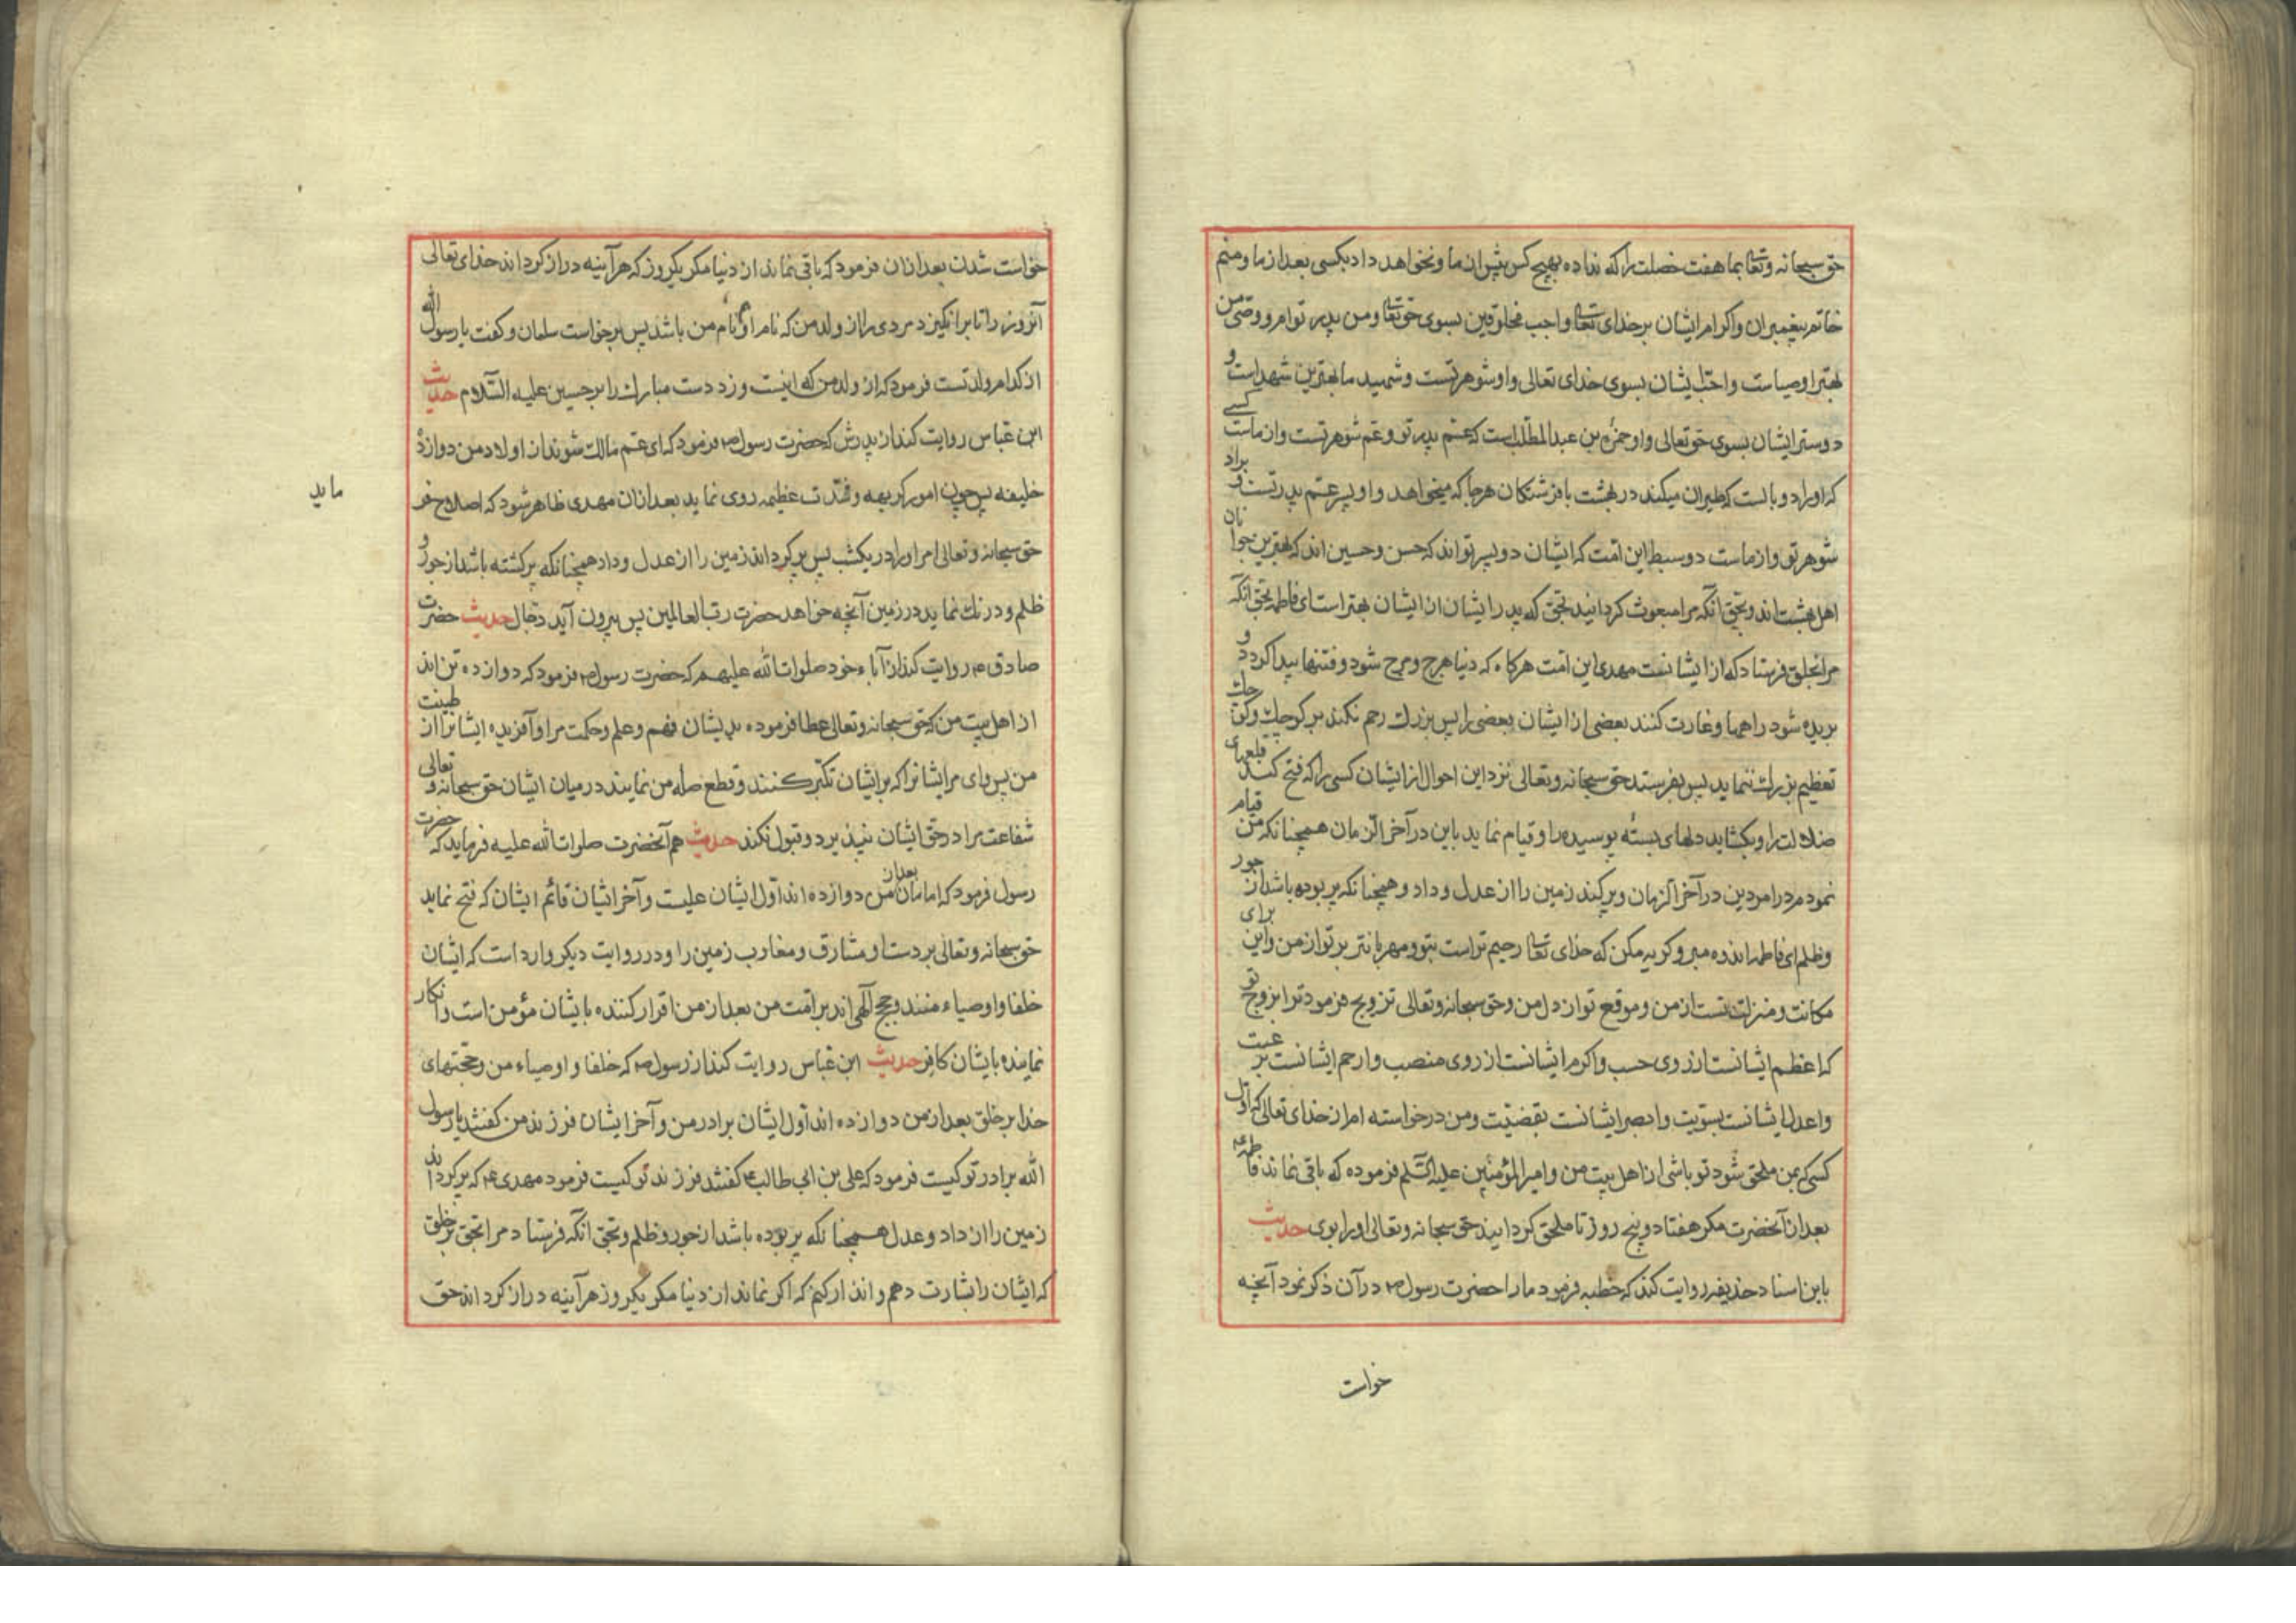 حق سبحانه وتعالی بما هفت خصلت را که نداده بهیچ کس پیش از ما ونخواهد داد بکسی بعد از ما ومنم
خاتم پیغمبران واکرام ایشان بر خدای تعالی واحب مخلوقین بسوی حق تعالی ومن پدر توام ووصی من
بهترین اوصیاست واحب ایشان بسوی خدای تعالی واو شوهر تست وشهید ما بهترین شهداست و
دوستر ایشان بسوی حق تعالی واو حمزه بن عبدالمطلب است که عم پدر تو وعم شوهر تست واز ماست کسی
که او را دو بالست که طیران میکند در بهشت با فرشتکان هرجا که میخواهد واو پسر عم پدر تست و براد
شوهر تو واز ماست دو سبط این امت که ایشان دو پسر تواند که حسن وحسین اند که بهترین جوانان
اهل بهشت اند وبحق آنکه مرا مبعوث کردانید بحق که پدر ایشان از ایشان بهتر است ای فاطمه بحق آنکه
مرا بخلق فرستاد که از ایشانست مهدی این امت هرکاه که دنیا هرج ومرج شود وفتنها پیدا کردد و
بریده شود راهها وغارت کنند بعضی از ایشان بعضی را پس بزرك رحم نکند بر کوچك وکوچك
تعظیم بزرك ننماید پس بفرستد حق سبحانه وتعالی نزد این احوال از ایشان کسی را که فتح کند قلعهای
ضلالت را وبکشاید دلهای بسته پوسیده را وقیام نماید باین در آخر الزمان همچنانکه من قیام
نمودم در امر دین در آخر الزمان وپر کند زمین را از عدل وداد وهمچنانکه پر بوده باشد از جور
وظلم ای فاطمه اندوه مبر وکریه مکن که خدای تعالی رحیم تر است بتو ومهربانتر بر تو از من واین برای
مکانت ومنزلت تست از من وموقع تو از دل من وحق سبحانه وتعالی تزویج فرمود ترا بزوج تو
که اعظم ایشانست از روی حسب واکرم ایشانست از روی منصب وارحم ایشانست بر رعیت
واعدل ایشانست بسویت وابصر ایشانست بقضیت ومن درخواسته ام از خدای تعالی که اول
کسی که بمن ملحق شود تو باشی از اهل بیت من وامیر المؤمنین علیه السلم فرموده که باقی نماند فاطمه ع
بعد از آنحضرت مکر هفتاد وپنج روز تا ملحق کردانید حق سبحانه وتعالی او را بوی حدیث
باین اسناد حذیفه روایت کند که خطبه فرمود ما را حضرت رسول ص در آن ذکر نمود آنچه
خواست
خواست شدن بعد از ان فرمود که باقی نماند از دنیا مکر یکروز که هرآینه دراز کرداند خدای تعالی
آنروز را تا برانکیزد مردی را از ولد من که نام او نام من باشد پس برخواست سلمان وکفت یا رسول الله
از کدام ولد تست فرمود که از ولد من که اینست وزد دست مبارك را بر حسین علیه السلام حدیث
ابن عباس روایت کند از پدرش که حضرت رسول ص فرمود که ای عم مالك شوند از اولاد من دوازده
خلیفه پس چون امور کریهه وشدت عظیمه روی نماید بعد از ان مهدی ظاهر شود که اصلاح فر
ماید
حق سبحانه وتعالی امر او را در یکشب پس پر کرداند زمین را از عدل وداد همچنانکه پر کشته باشد از جور و
ظلم ودرنك نماید در زمین آنچه خواهد حضرت رب العالمین پس بیرون آید دجال حدیث حضرت
صادق ع روایت کند از آباء خود صلوات الله علیهم که حضرت رسول ص فرمود که دوازده تن اند
از اهل بیت من که حق سبحانه وتعالی عطا فرموده بدیشان فهم وعلم وحکمت مرا وآفریده ایشانرا از طینت
من پس وای مر ایشانرا که بر ایشان تکبر کنند وقطع صله من نمایند در میان ایشان حق سبحانه و تعالی
شفاعت مرا در حق ایشان نپذیرد وقبول نکند حدیث هم آنحضرت صلوات الله علیه فرماید که حضرت
رسول فرمود که امامان بعد از من دوازده اند اول ایشان علیست وآخر ایشان قائم ایشان که فتح نماید
حق سبحانه وتعالی بر دست او مشارق ومغارب زمین را ودر روایت دیکر وارد است که ایشان
خلفا واوصیاء منند وحجج آلهی اند بر امت من بعد از من اقرار کننده بایشان مؤمن است وانکار
نماینده بایشان کافر حدیث ابن عباس روایت کند از رسول ص که خلفا واوصیاء من وحجتهای
خدا بر خلق بعد از من دوازده اند اول ایشان برادر من وآخر ایشان فرزند من کفتند یا رسول
الله برادر تو کیست فرمود که علی بن ابی طالب ع کفتند فرزند تو کیست فرمود مهدی ع که پر کرداند
زمین را از داد وعدل همچنانکه پر بوده باشد از جور وظلم وبحق آنکه فرستاد مرا بحق بر خلق
که ایشان را بشارت دهم وانذار کنم که اکر نماند از دنیا مکر یکروز هرآینه دراز کرداند حق